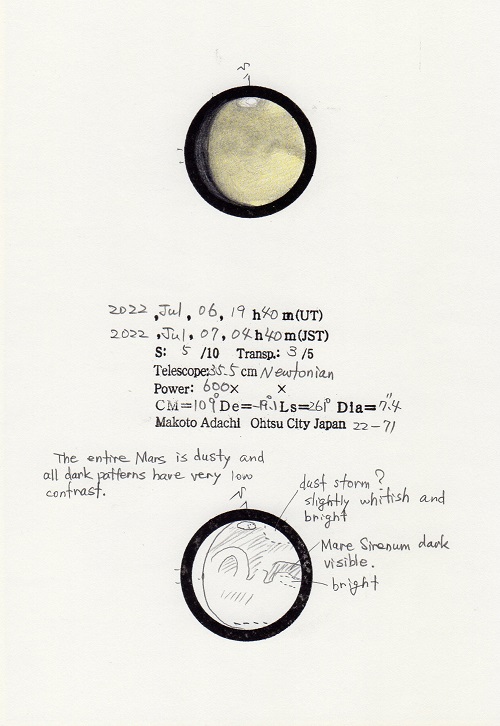 N
2022, Jul, 06, 19 h 40 m (UT)
2022, Jul, 07, 04 h 40 m (JST)
S: 5 /10 Transp.: 3 /5
Telescope: 35.5 cm Newtonian
Power: 600× ×
CM=109° De=-19.1 Ls=261° Dia=7".4
Makoto Adachi Ohtsu City Japan 22-71
The entire Mars is dusty and
all dark patterns have very low
contrast.
N
dust storm?
slightly whitish and
bright
Mare Sirenum dark
visible.
bright